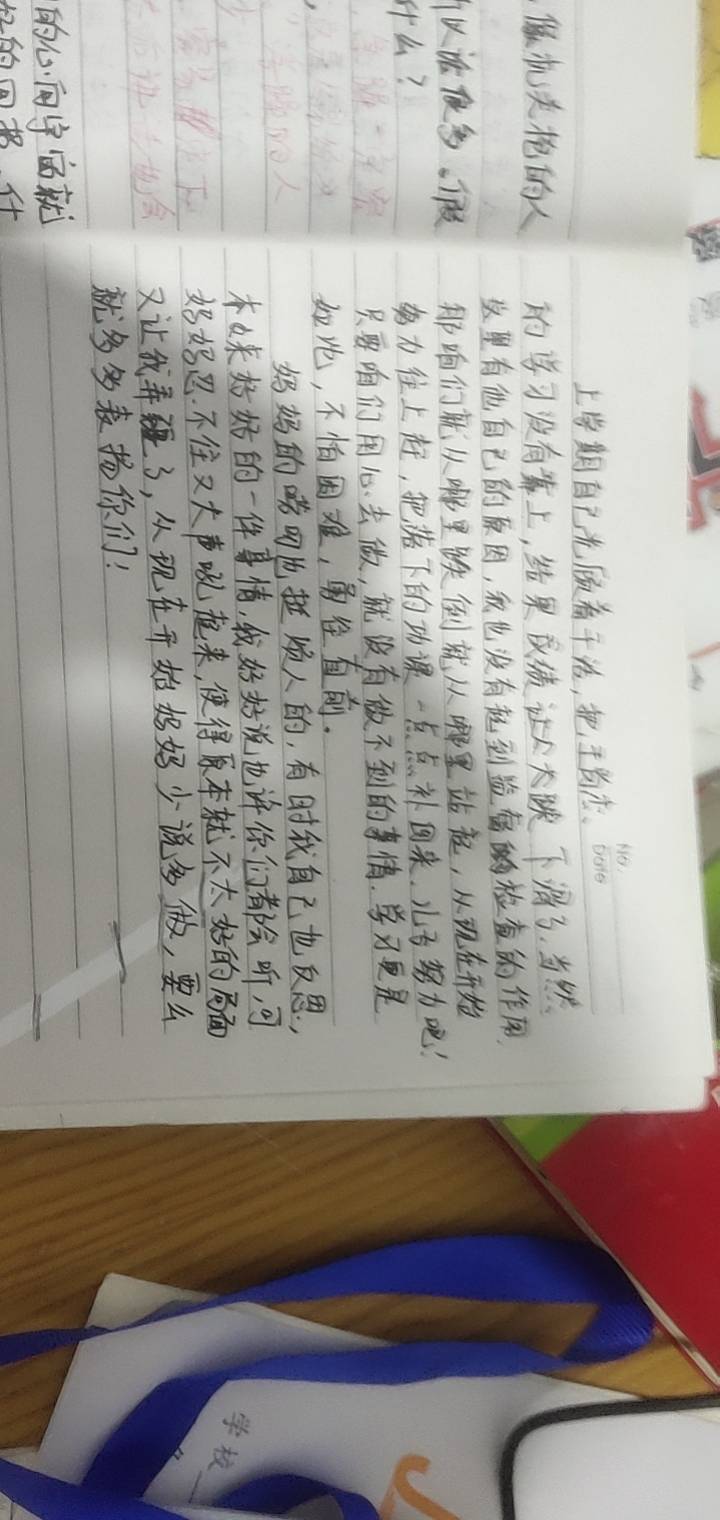 上学期自己光顾着干活,把王
的学习没有靠上,结果成绩让人大跌下滑了.当然
这里有他自己的原因,我也没有起到监督的检查的作用.
那咱们就从哪里跌倒就从哪里站起,从现在开始
努力往上赶,把落下的功课一点点补回来.儿子努力吧!
只要咱们用心去做,就没有做不到的事情.学习更是
如此,不怕困难,勇往直前.
妈妈的唠叨也挺烦人的,有时我自己也反思,
本来好好的一件事情,我好好说也许你们都会听,可
妈妈忍不住又大声吼起来,使得原本就不太好的局面
又让我弄疆了,从现在开始妈妈少说多做,要么
就多多表扬你们!
No.
Date
的人
所以
多。假
什么?
的心.向宇宙就
学校